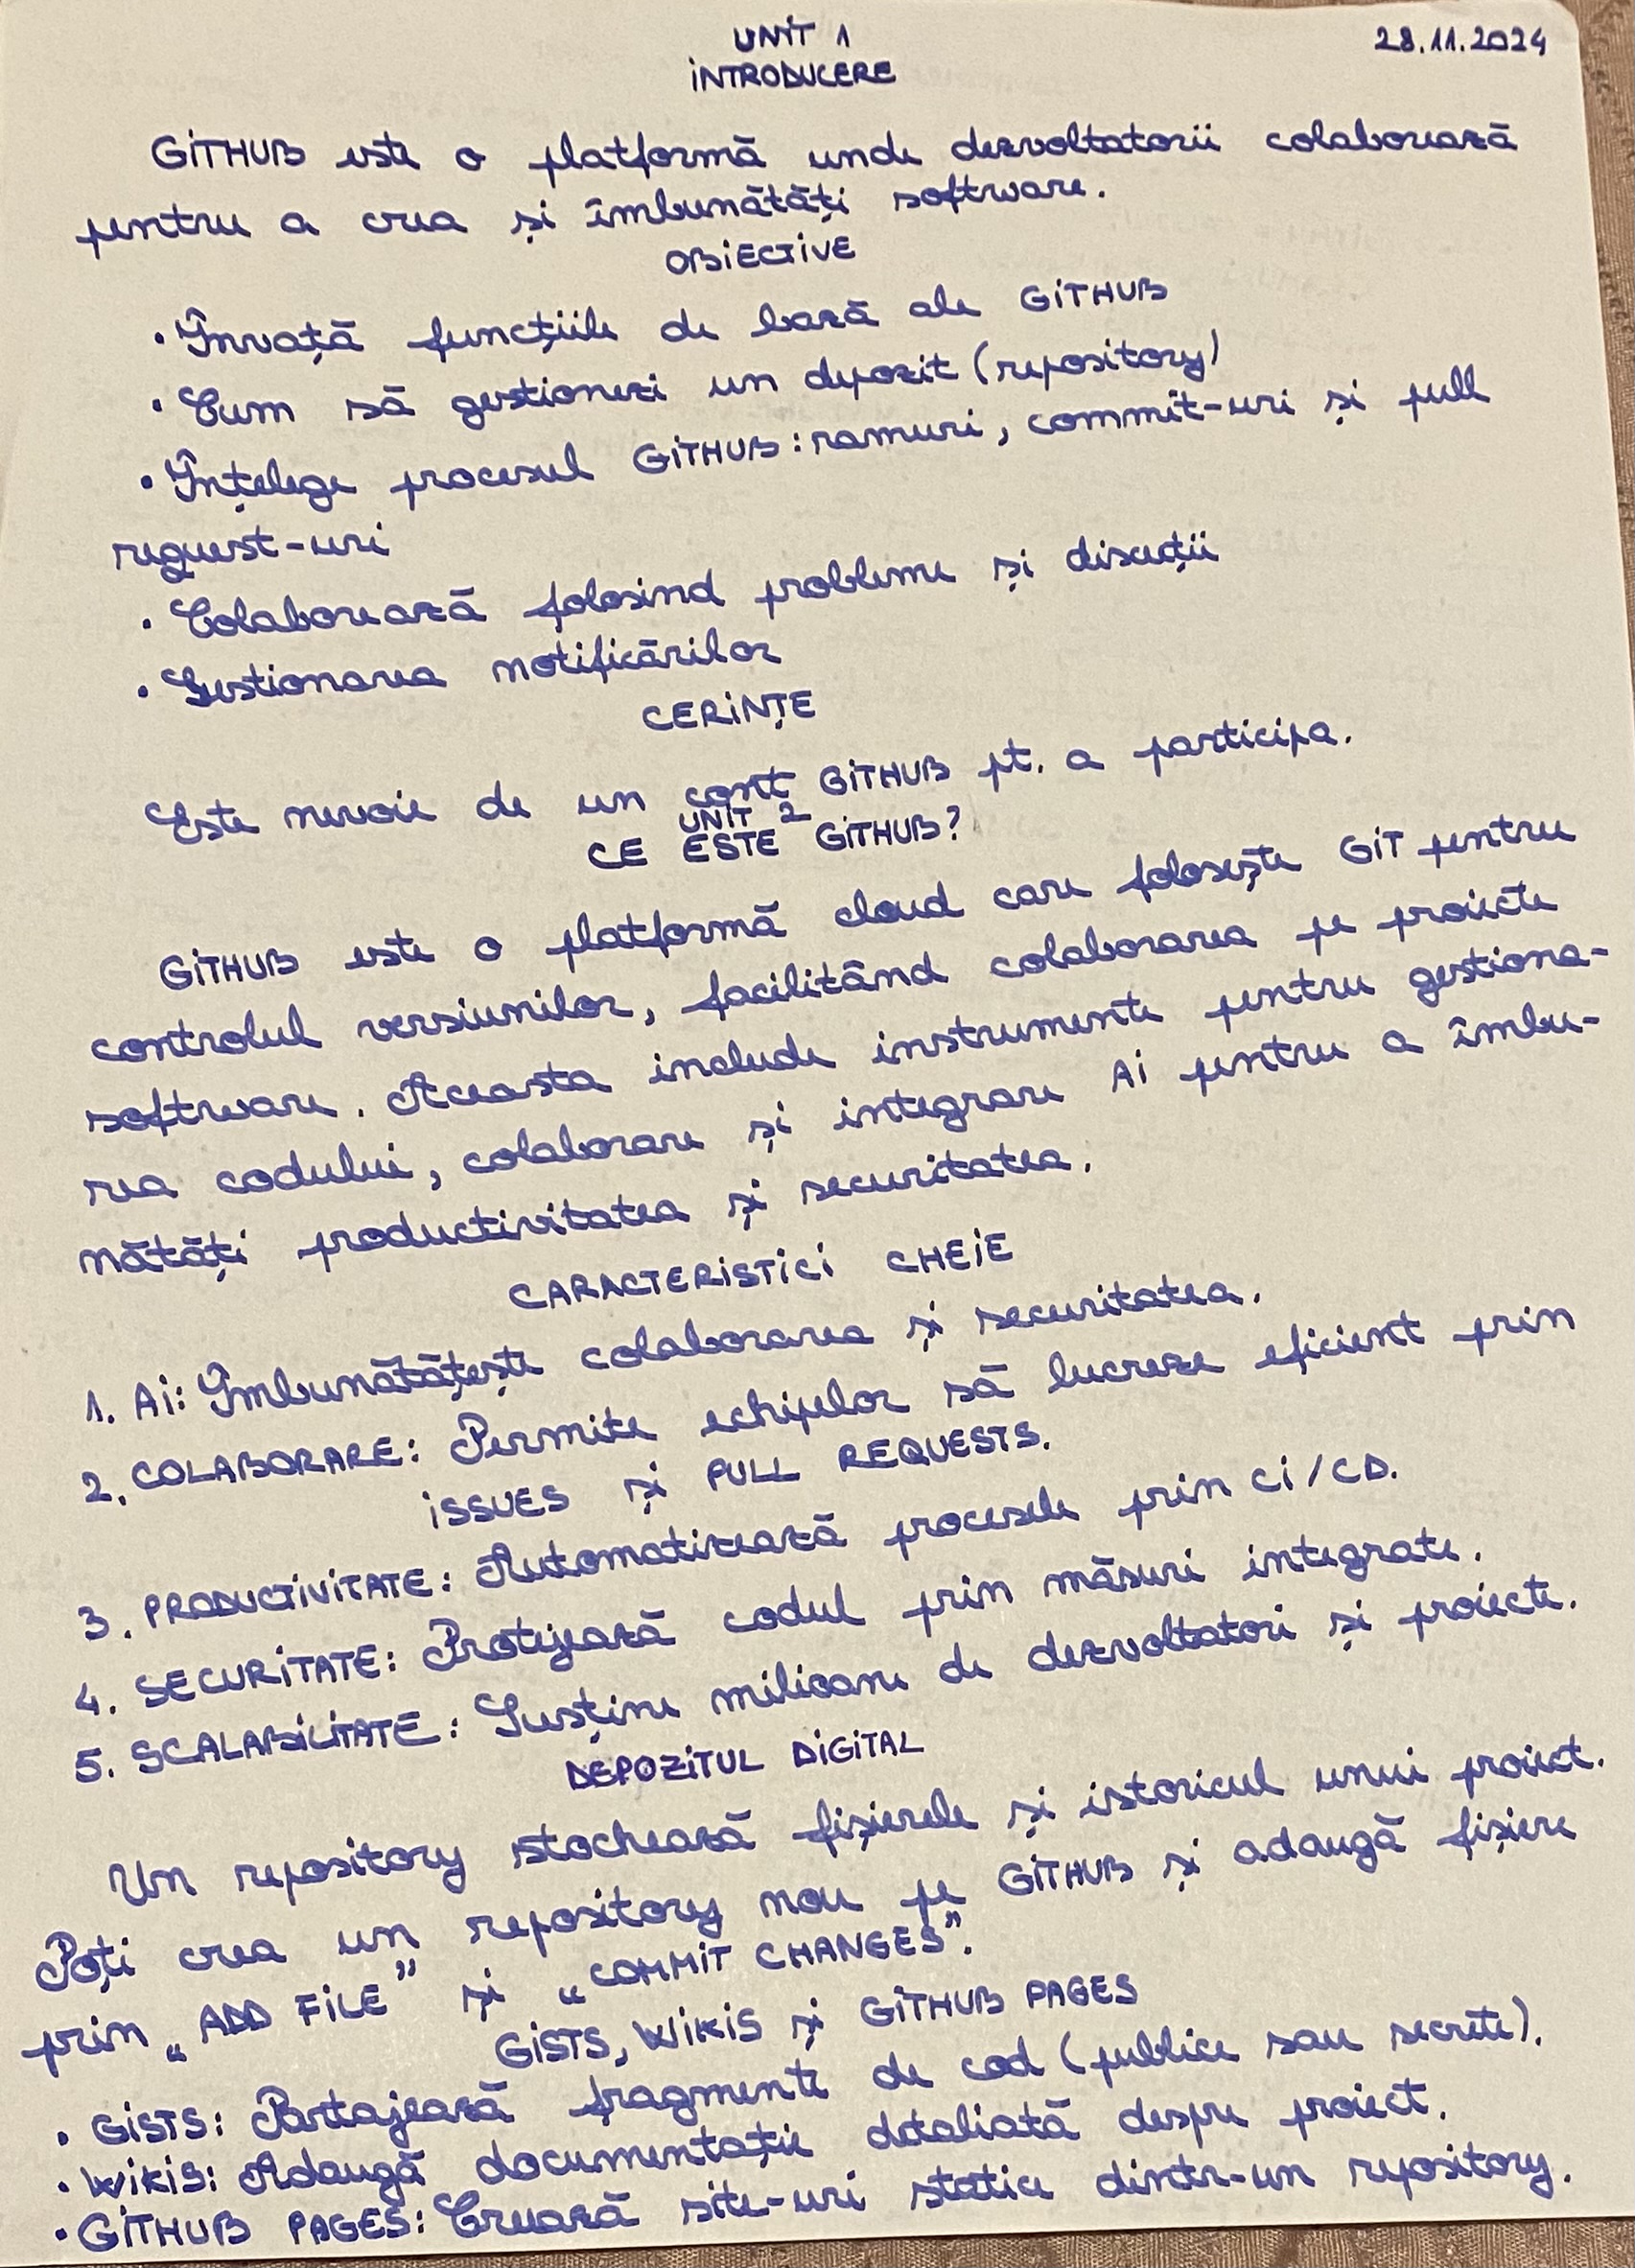 UNIT 1
28.11.2024
INTRODUCERE
GITHUB este o platformă unde dezvoltatorii colaborează
pentru a crea și îmbunătăți software.
OBIECTIVE
• Învață funcțiile de bază ale GITHUB
• Cum să gestionezi un depozit (repository)
• Înțelege procesul GITHUB: ramuri, commit-uri și pull
request-uri
• Colaborează folosind probleme și discuții
• Gestionarea notificărilor
CERINȚE
Este nevoie de un cont GITHUB pt. a participa.
UNIT 2
CE ESTE GITHUB?
GITHUB este o platformă cloud care folosește GIT pentru
controlul versiunilor, facilitând colaborarea pe proiecte
software. Aceasta include instrumente pentru gestiona-
rea codului, colaborare și integrare AI pentru a îmbu-
nătăți productivitatea și securitatea.
CARACTERISTICI CHEIE
1. AI: Îmbunătățește colaborarea și securitatea.
2. COLABORARE: Permite echipelor să lucreze eficient prin
ISSUES și PULL REQUESTS.
3. PRODUCTIVITATE: Automatizează procesele prin CI/CD.
4. SECURITATE: Protejează codul prin măsuri integrate.
5. SCALABILITATE: Susține milioane de dezvoltatori și proiecte.
DEPOZITUL DIGITAL
Un repository stochează fișierele și istoricul unui proiect.
Poți crea un repository nou pe GITHUB și adaugă fișiere
prin „ADD FILE” și „COMMIT CHANGES”.
GISTS, WIKIS și GITHUB PAGES
• GISTS: Partajează fragmente de cod (publice sau secrete).
• WIKIS: Adaugă documentație detaliată despre proiect.
• GITHUB PAGES: Creează site-uri statice dintr-un repository.